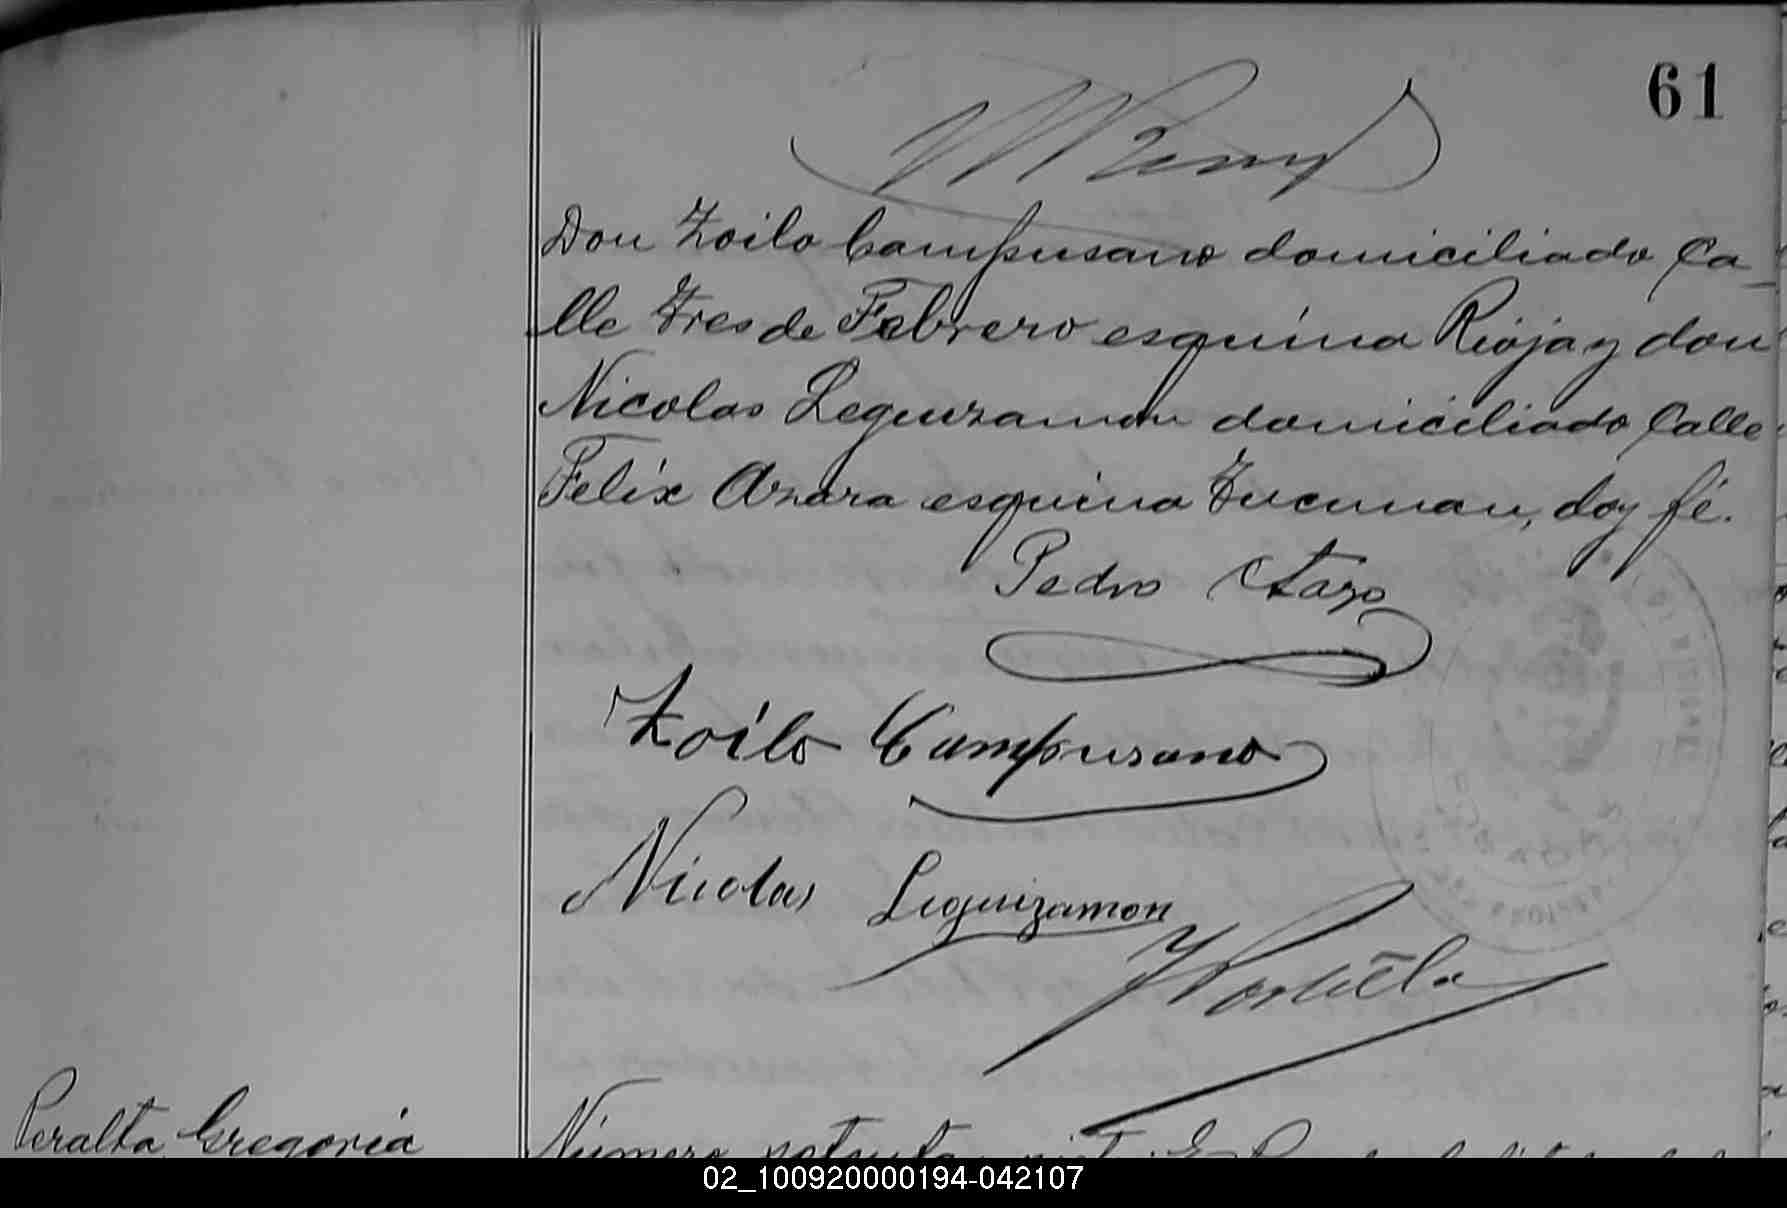 61
Don Zoilo Campusano domiciliado Ca-
lle Tres de Febrero esquina Rioja y don
Nicolas Leguizamon domiciliado Calle
Felix Azara esquina Tucuman, doy fé.
Pedro
Zoilo Campusano
Nicolas Leguizamon
Peralta Gregoria
Número
02_100920000194-042107